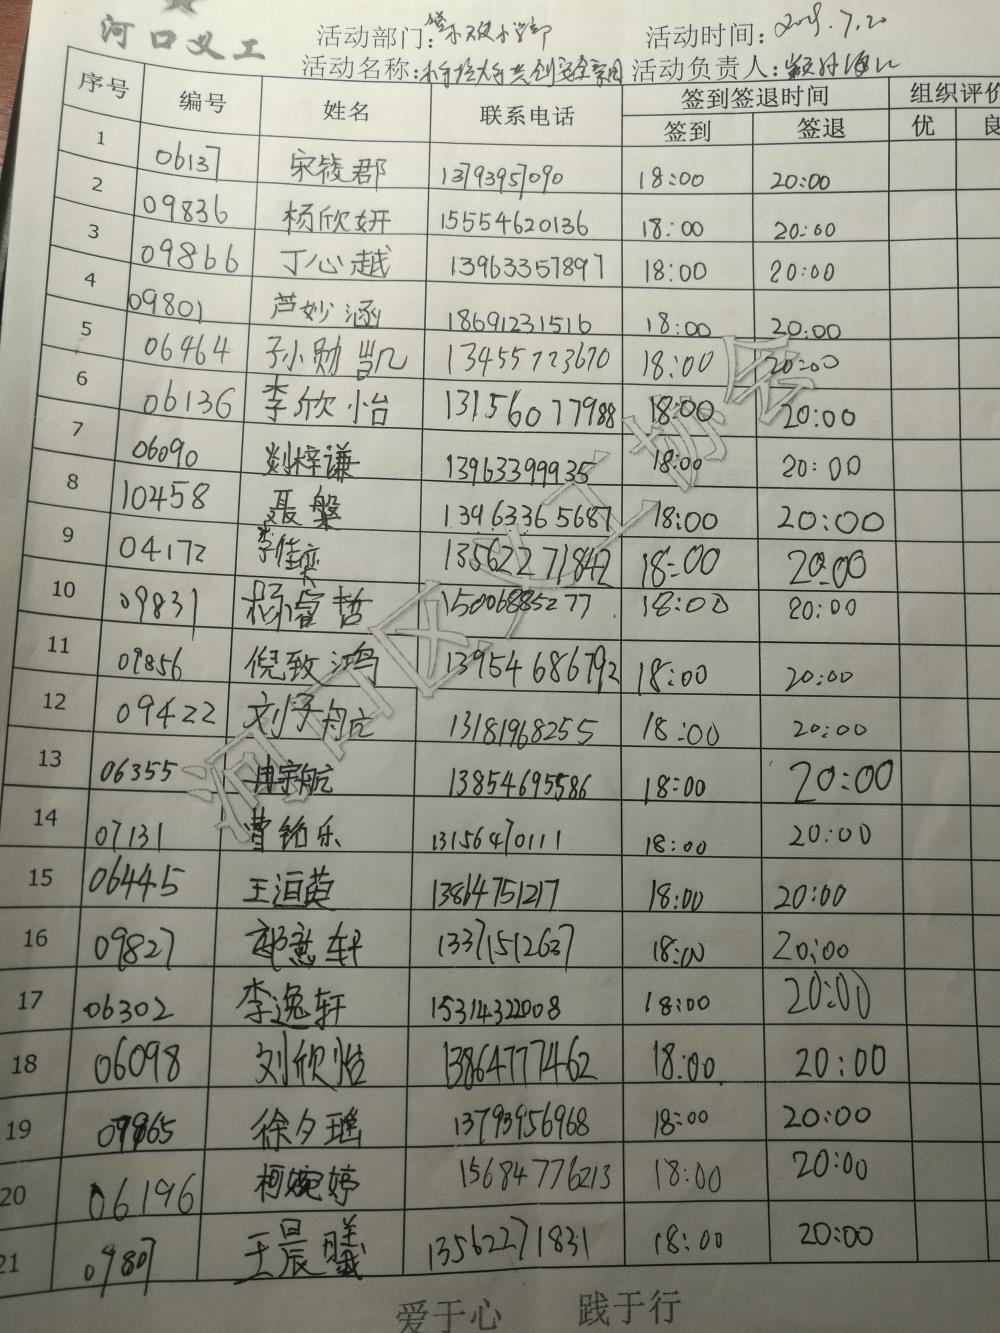 河口义工 活动部门： 小学部 活动时间：2019.7.20
活动名称：手拉大手共创安全家园 活动负责人：
序号 编号 姓名 联系电话 签到签退时间 组织评价
签到 签退 优 良
1 06137 宋筱郡 13793957090 18:00 20:00
2 09836 杨欣妍 15554620136 18:00 20:00
3 09866 丁心越 13963357897 18:00 20:00
4 09801 芦妙涵 18691231516 18:00 20:00
5 06464 孙勋凯 13455723670 18:00 20:00
6 06136 李欣怡 13156077988 18:00 20:00
7 06090 梓谦 13963399935 18:00 20:00
8 10458 聂槃 13963365687 18:00 20:00
9 04172 李佳奕 13562271842 18:00 20:00
10 09831 杨睿哲 15006885277 18:00 20:00
11 09856 倪致鸿 13954686792 18:00 20:00
12 09422 刘子航 13181968255 18:00 20:00
13 06355 冉宇航 13854695586 18:00 20:00
14 07131 曹铭乐 13156470111 18:00 20:00
15 06445 王洹茵 13864751217 18:00 20:00
16 09827 轩 13371512637 18:00 20:00
17 06302 李逸轩 15314322008 18:00 20:00
18 06098 刘欣怡 13864777462 18:00 20:00
19 09965 徐夕瑶 13793956968 18:00 20:00
20 06196 柯婉婷 15684776213 18:00 20:00
21 09807 王晨曦 13562271831 18:00 20:00
爱于心 践于行
河口区义工协会